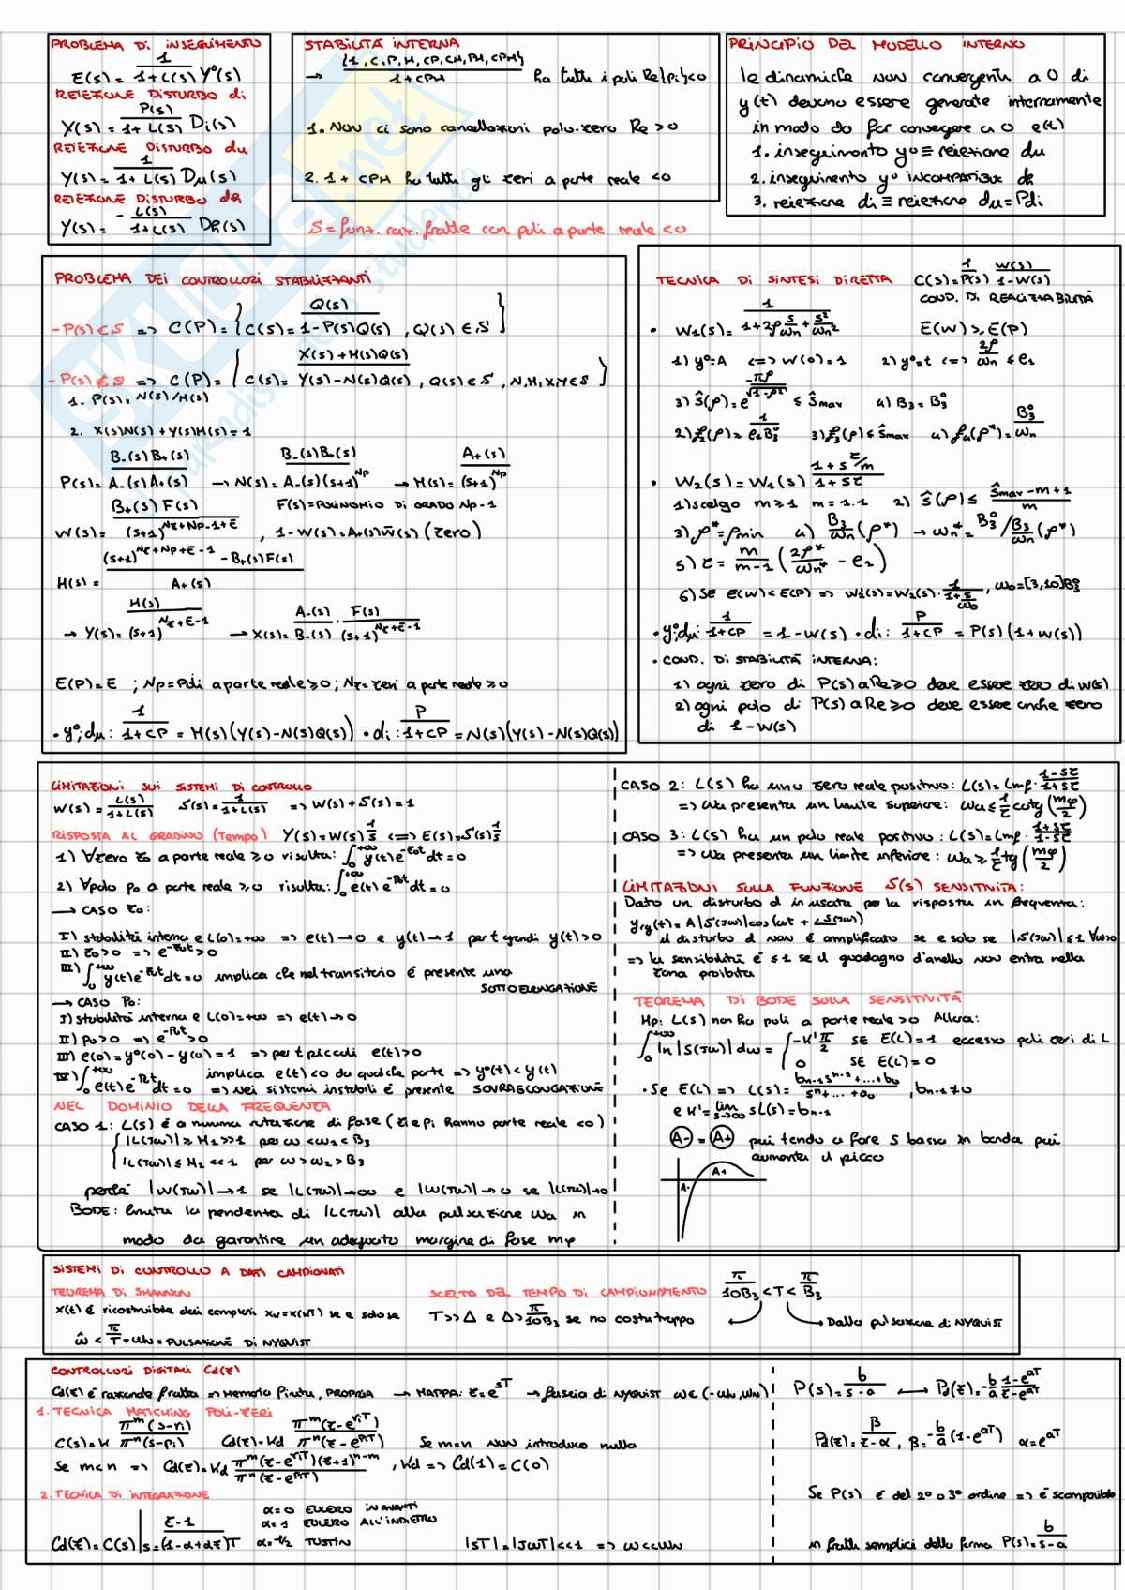 PROBLEMA DI INSEGUIMENTO
E(s) = 1/(1+L(s)) Y°(s)
REIEZIONE DISTURBO di
Y(s) = P(s)/(1+L(s)) Di(s)
REIEZIONE DISTURBO du
Y(s) = 1/(1+L(s)) Du(s)
REIEZIONE DISTURBO dR
Y(s) = -L(s)/(1+L(s)) DR(s)
STABILITÀ INTERNA
→ {1, C, P, H, CP, CH, PH, CPH}/(1+CPH) ha tutti i poli Re[pi]<0
1. Non ci sono cancellazioni polo-zero Re>0
2. 1 + CPH ha tutti gli zeri a parte reale <0
S = funz. raz. fratte con poli a parte reale <0
PRINCIPIO DEL MODELLO INTERNO
le dinamiche non convergenti a 0 di
y(t) devono essere generate internamente
in modo da far convergere a 0 e(t)
1. inseguimento y° ≡ reiezione du
2. inseguimento y° INCOMPATIBILE dR
3. reiezione di ≡ reiezione du = Pdi
PROBLEMA DEI CONTROLLORI STABILIZZANTI
- P(s) ∈ S => C(P) = {C(s) = Q(s)/(1-P(s)Q(s)), Q(s) ∈ S}
- P(s) ∉ S => C(P) = {C(s) = (X(s)+M(s)Q(s))/(Y(s)-N(s)Q(s)), Q(s) ∈ S, N,M,X,Y ∈ S}
1. P(s) = N(s)/M(s)
2. X(s)N(s) + Y(s)M(s) = 1
P(s) = B-(s)B+(s)/A-(s)A+(s) → N(s) = B-(s)B+(s)/A-(s)(s+1)^Np → M(s) = A+(s)/(s+1)^Np
W(s) = B+(s)F(s)/(s+1)^(Nz+Np-1+E), F(s) = POLINOMIO DI GRADO Np-1
1-W(s) = A+(s)W̃(s) (zero)
H(s) = ((s+1)^(Nz+Np+E-1) - B+(s)F(s))/A+(s)
→ Y(s) = H(s)/(s+1)^(Nz+E-1) → X(s) = A-(s)/B-(s) · F(s)/(s+1)^(Nz+E-1)
E(P) = E ; Np = Poli a parte reale ≥0 ; Nz = zeri a parte reale ≥0
• y°, du : 1/(1+CP) = M(s)(Y(s)-N(s)Q(s)) • di : P/(1+CP) = N(s)(Y(s)-N(s)Q(s))
TECNICA DI SINTESI DIRETTA C(s) = 1/P(s) W(s)/(1-W(s))
COND. DI REALIZZABILITÀ
• W1(s) = 1/(1+2ρ s/ωn + s²/ωn²) E(W) ≥ E(P)
1) y° = A <=> W(0) = 1 2) y° = t <=> 2ρ/ωn ≤ e2
3) ŝ(ρ) = e^(-πρ/√(1-ρ²)) ≤ ŝmax 4) B3 = B3°
2) f2(ρ) ≥ 1/(e2 B3°) 3) f3(ρ) ≤ ŝmax 4) f4(ρ*) = B3°/ωn
• W2(s) = W1(s) (1+sτ/m)/(1+sτ)
1) scelgo m ≥ 1 m = 1.1 2) ŝ(ρ) ≤ (ŝmax - m + 1)/m
3) ρ* = ρmin 4) B3/ωn (ρ*) → ωn* = B3°/ B3/ωn (ρ*)
5) τ = m/(m-1) (2ρ*/ωn* - e2)
6) Se e(W) < E(P) => W3(s) = W2(s) · 1/(1+s/ω0), ω0 = [3,10]B3°
• y°, du : 1/(1+CP) = 1 - W(s) • di : P/(1+CP) = P(s)(1+W(s))
• COND. DI STABILITÀ INTERNA:
1) ogni zero di P(s) a Re≥0 deve essere zero di W(s)
2) ogni polo di P(s) a Re≥0 deve essere anche zero
di 1 - W(s)
LIMITAZIONI SUI SISTEMI DI CONTROLLO
W(s) = L(s)/(1+L(s)) S(s) = 1/(1+L(s)) => W(s) + S(s) = 1
RISPOSTA AL GRADINO (Tempo) Y(s) = W(s) 1/s <=> E(s) = S(s) 1/s
1) ∀ zero z0 a parte reale ≥0 risulta: ∫0^+∞ y(t) e^(-z0t) dt = 0
2) ∀ polo p0 a parte reale ≥0 risulta: ∫0^+∞ e(t) e^(-p0t) dt = 0
→ CASO z0:
I) stabilità interna e L(0) = +∞ => e(t) → 0 e y(t) → 1 per t grandi y(t) > 0
II) z0 > 0 => e^(-z0t) > 0
III) ∫0^+∞ y(t) e^(-z0t) dt = 0 implica che nel transitorio è presente una
SOTTOELONGAZIONE
→ CASO P0:
I) stabilità interna e L(0) = +∞ => e(t) → 0
II) p0 > 0 => e^(-p0t) > 0
III) e(0) = y°(0) - y(0) = 1 => per t piccoli e(t) > 0
IV) ∫0^+∞ e(t) e^(-p0t) dt = 0 implica e(t) < 0 da qualche parte => y°(t) < y(t)
=> nei sistemi instabili è presente SOVRAELONGAZIONE
NEL DOMINIO DELLA FREQUENZA
CASO 1: L(s) è a minima rotazione di fase (zi e pi hanno parte reale <0)
{ |L(jω)| ≥ M1 >> 1 per ω < ω1 < B3
|L(jω)| ≤ M2 << 1 per ω > ω2 > B3
perché |W(jω)| → 1 se |L(jω)| → ∞ e |W(jω)| → 0 se |L(jω)| → 0
BODE: limita la pendenza di |L(jω)| alla pulsazione ωa in
modo da garantire un adeguato margine di fase mφ
CASO 2: L(s) ha uno zero reale positivo: L(s) = Lmf · (1-sτ)/(1+sτ)
=> ωa presenta un limite superiore: ωa ≤ 1/τ cotg (mφ/2)
CASO 3: L(s) ha un polo reale positivo: L(s) = Lmf · (1+sτ)/(1-sτ)
=> ωa presenta un limite inferiore: ωa ≥ 1/τ tg (mφ/2)
LIMITAZIONI SULLA FUNZIONE S(s) SENSITIVITÀ:
Dato un disturbo d in uscita per la risposta in frequenza:
yrg(t) = A|S(jω)|cos(ωt + ∠S(jω))
il disturbo d non è amplificato se e solo se |S(jω)| ≤ 1 ∀ω>0
=> la sensibilità è ≤1 se il guadagno d'anello non entra nella
zona proibita
TEOREMA DI BODE SULLA SENSITIVITÀ
Hp: L(s) non ha poli a parte reale >0 Allora:
∫0^+∞ ln|S(jω)| dω = { -k' π/2 SE E(L) = 1 eccesso poli zeri di L
0 SE E(L) = 0
• Se E(L) => L(s) = (bn-1 s^(n-1) + ... + b0)/(s^n + ... + a0), bn-1 ≠ 0
e k' = lim s→∞ sL(s) = bn-1
A- = A+ più tendo a fare S bassa in banda più
aumenta il picco
A+
A-
SISTEMI DI CONTROLLO A DATI CAMPIONATI
TEOREMA DI SHANNON
x(t) è ricostruibile dai campioni xk = x(kT) se e solo se
ω̂ < π/T = ωN = PULSAZIONE DI NYQUIST
SCELTA DEL TEMPO DI CAMPIONAMENTO π/10B3 < T < π/B3
T >> Δ e Δ > π/10B3 se no costa troppo
Dalla pulsazione di NYQUIST
CONTROLLORI DIGITALI Cd(z)
Cd(z) è razionale fratta => Memoria Finita, PROPRIA → MAPPA: z = e^sT → fascia di NYQUIST ω ∈ (-ωN, ωN)
1. TECNICA MATCHING POLI-ZERI
C(s) = K π^m(s-ri)/π^n(s-pi) Cd(z) = Kd π^m(z-e^riT)/π^n(z-e^piT) Se m=n NON introduco nulla
Se m<n => Cd(z) = Kd π^m(z-e^riT)(z+1)^(n-m)/π^n(z-e^piT), Kd => Cd(1) = C(0)
2. TECNICA DI INTEGRAZIONE
Cd(z) = C(s)| s = (z-1)/((1-α+αz)T)
α=0 EULERO IN AVANTI
α=1 EULERO ALL'INDIETRO
α=1/2 TUSTIN
|sT| = |jωT| << 1 => ω << ωN
P(s) = b/(s-a) ⟷ Pd(z) = -b/a (1-e^aT)/(z-e^aT)
Pd(z) = β/(z-α), β = -b/a (1-e^aT) α = e^aT
Se P(s) è del 2° o 3° ordine => è scomponibile
in fratti semplici della forma P(s) = b/(s-a)